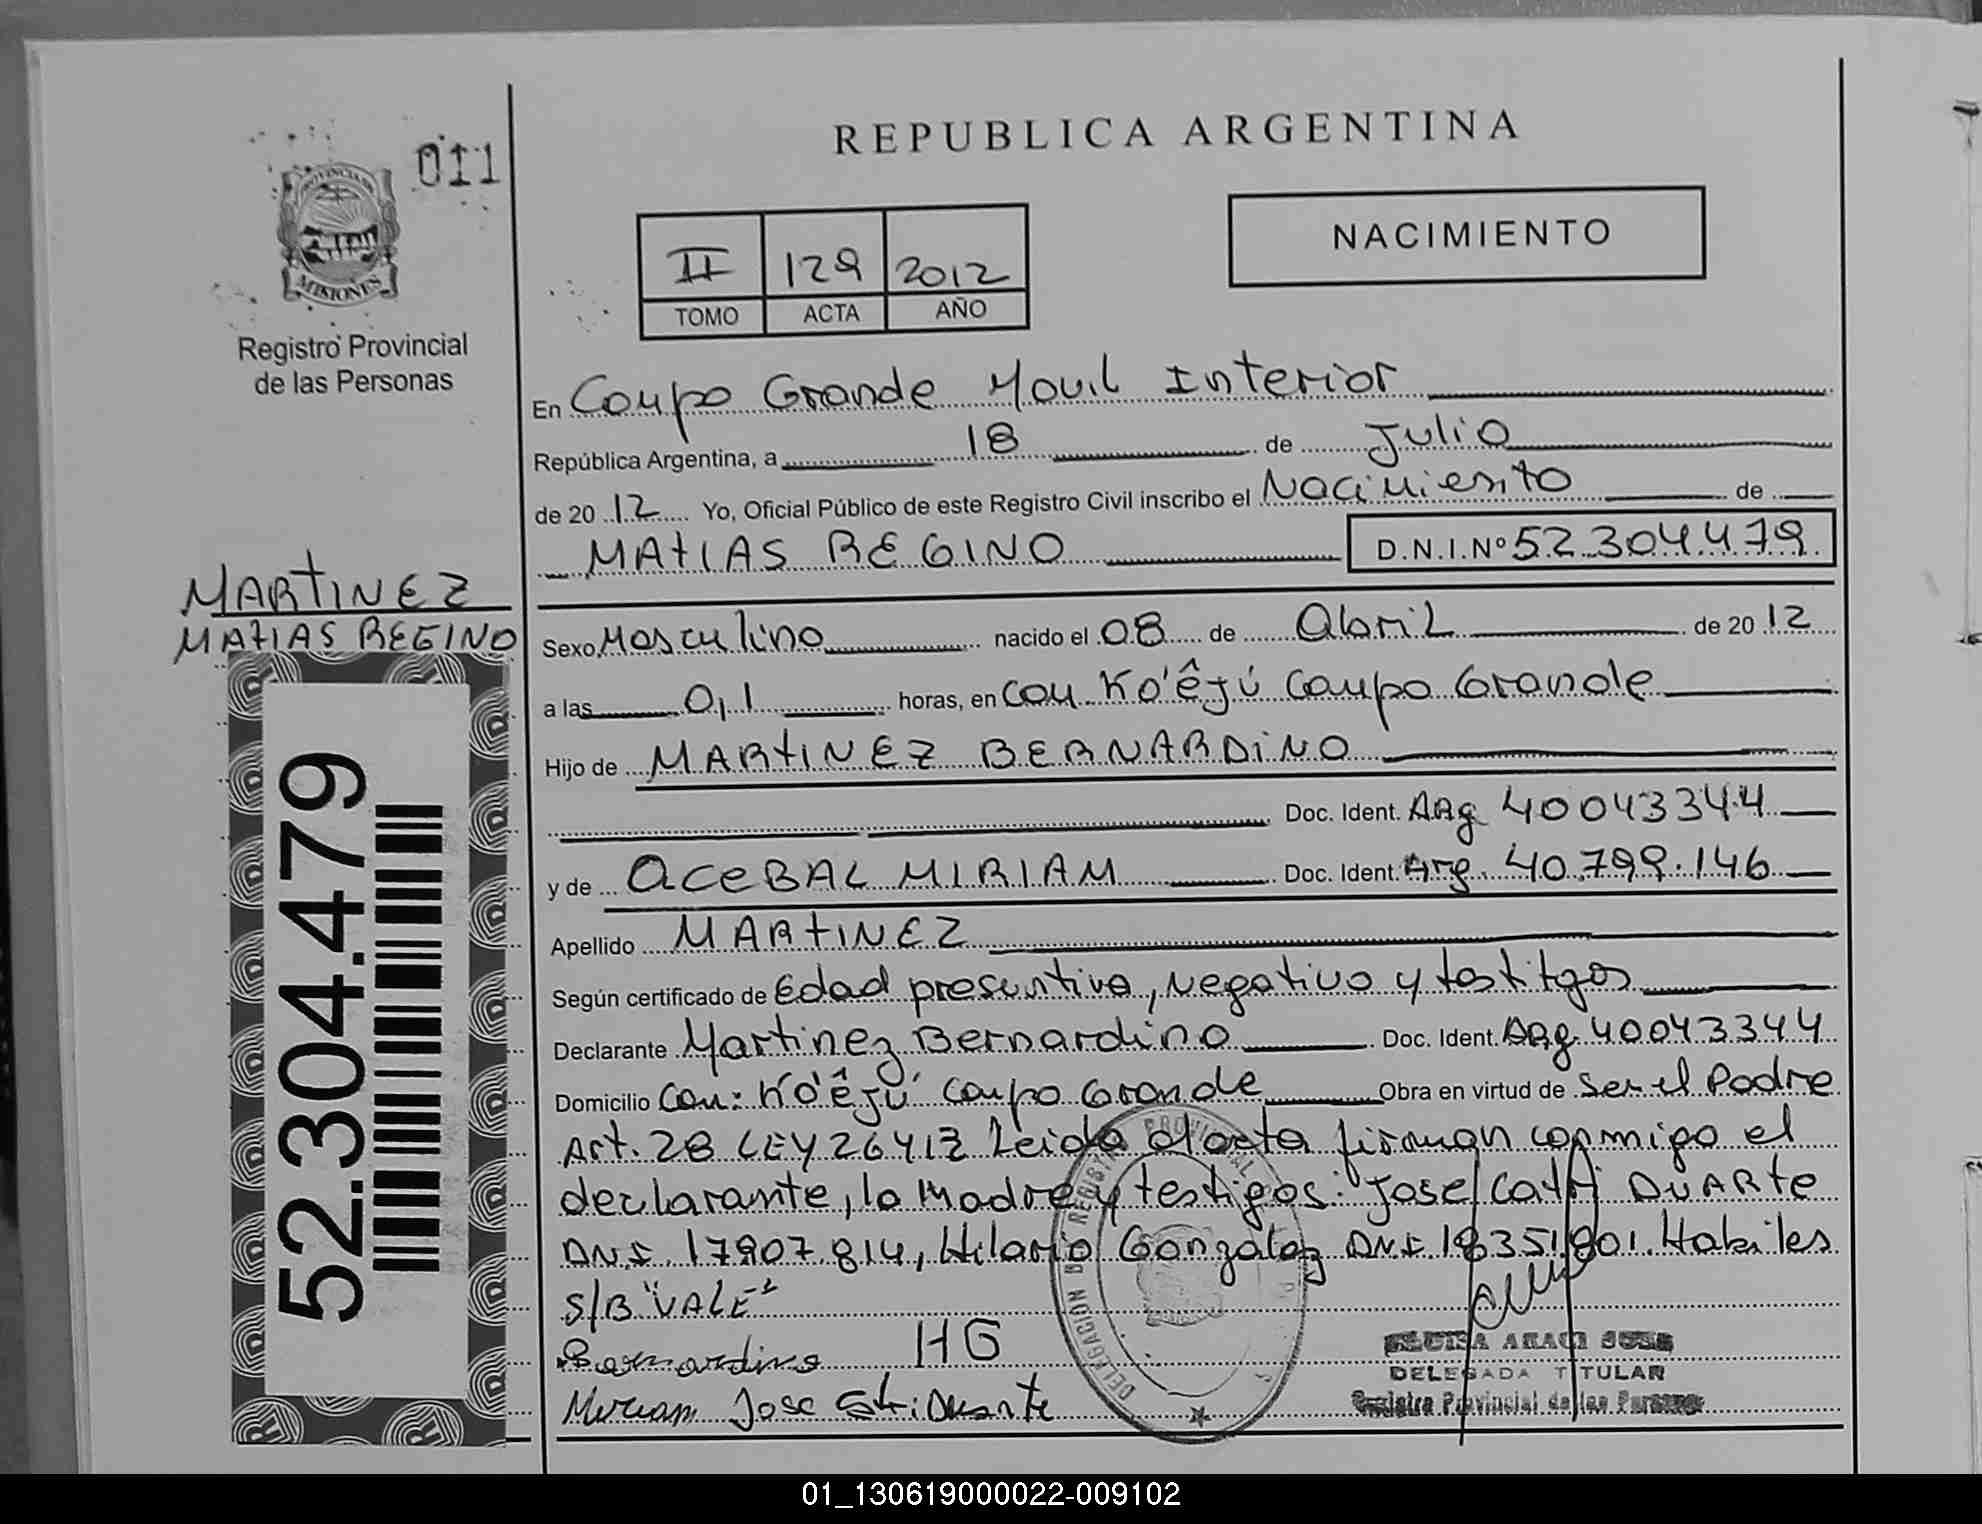 011
PROVINCIA DE
MISIONES
Registro Provincial
de las Personas
REPUBLICA ARGENTINA
II 129 2012
TOMO ACTA AÑO
NACIMIENTO
En Campo Grande Movil Interior
República Argentina, a 18 de Julio
de 2012 Yo, Oficial Público de este Registro Civil inscribo el Nacimiento de
MATIAS REGINO D.N.I.Nº 52.304.479
MARTINEZ
MATIAS REGINO
52.304.479
Sexo Masculino nacido el 08 de Abril de 2012
a las 0,1 horas, en Com Ko'êjú Campo Grande
Hijo de MARTINEZ BERNARDINO
Doc. Ident. Arg 40043344
y de ACEBAL MIRIAM Doc. Ident. Arg. 40.799.146
Apellido MARTINEZ
Según certificado de Edad presuntiva, Negativo y testitgos
Declarante Martinez Bernardino Doc. Ident. Arg 40043344
Domicilio Com: Ko'êjú Campo Grande Obra en virtud de Ser el Padre
Art. 28 LEY 26413 Leida el acta firman conmigo el
declarante, la Madre y testigos: Jose Catri DUARTE
DNI. 17907.814, Hilario Gonzalez DNI. 18351.801. Habiles
S/B "VALE"
Bernardino HG
Miriam Jose Catri Duarte
DELEGACION REGISTRO PROVINCIAL
ARACI
DELEGADA TITULAR
Registro Provincial de las Personas
01_130619000022-009102